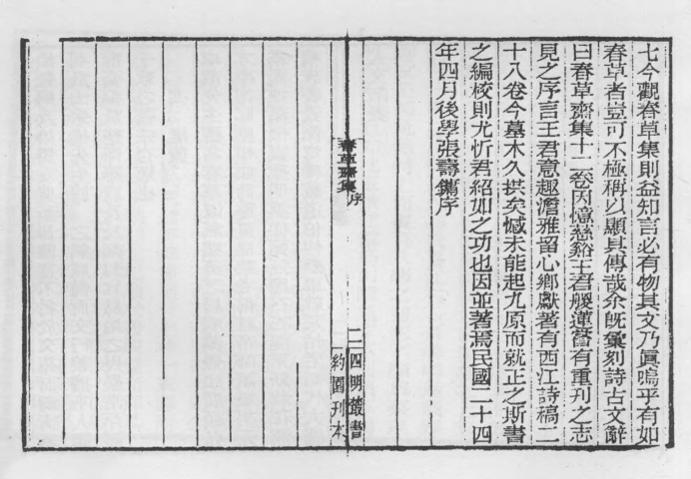 七今觀春草集則益知言必有物其文乃眞嗚乎有如
春草者豈可不極稱以顯其傳哉余旣彙刻詩古文辭
曰春草齋集十二卷因憶慈谿王君艧蓮嘗有重刊之志
見之序言王君意趣澹雅留心鄉獻著有西江詩稿二
十八卷今墓木久拱矣憾未能起九原而就正之斯書
之編校則尤忻君紹如之功也因並著焉民國二十四
年四月後學張壽鏞序
春草齋集 序
二 四明叢書
約園刊本